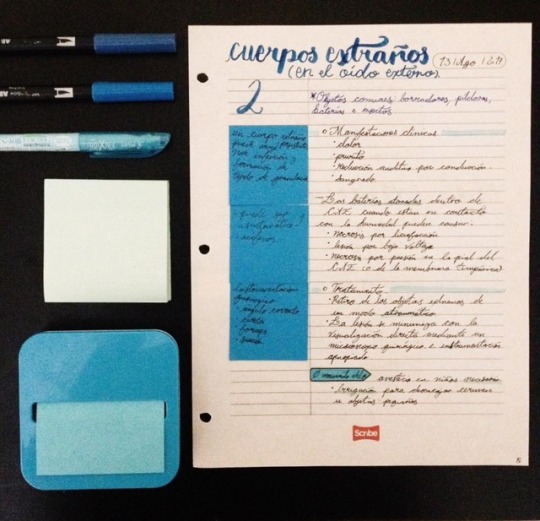 cuerpos extraños
(en el oído externo)
13 | Ago |
2
*Objetos comunes: borradores, píldoras,
baterías e insectos
un cuerpo extraño
puede
por infección y
formación de
tejido de granulación
○ Manifestaciones clínicas
· dolor
· prurito
· reducción auditiva por conducción
· sangrado
- Las baterías alojadas dentro de
CAE cuando están en contacto
con la humedad pueden causar:
· necrosis por licuefacción
· lesión por bajo voltaje
· necrosis por presión en la piel del
CAE o de la membrana timpánica
· puede ser
asintomático
Instrumentación
quirúrgico
· ángulo correcto
· cureta
· forceps
· succión
○ Tratamiento
· Retiro de los objetos extraños de
un modo atraumático
· La lesión se minimiza con la
visualización directa mediante un
microscopio quirúrgico e instrumentación
apropiada
anestesia en niños
· Irrigación para desalojar cerumen
u objetos pequeños
Scribe